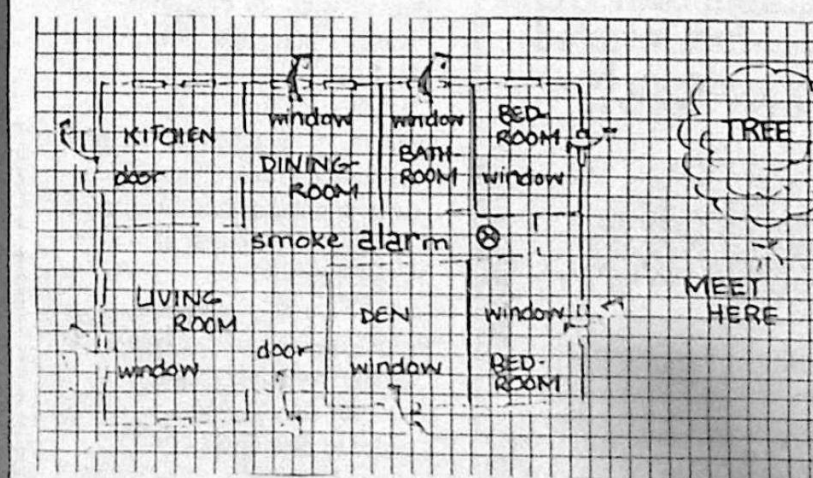 KITCHEN
door
window
DINING-
ROOM
window
BATH-
ROOM
BED-
ROOM
window
TREE
smoke alarm
MEET
HERE
LIVING
ROOM
window
door
DEN
window
window
BED-
ROOM